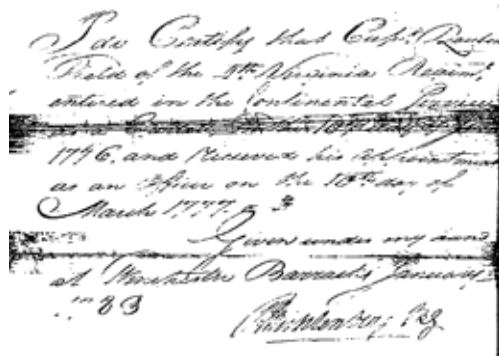 I do Certify that Capt. Reuben
Field of the 4th Virginia Regimt.
entered in the Continental Service
1776, and received his appointment
as an Officer on the 10th day of
March 1777.
Given under my hand
at Winchester Barracks January
83
P. Muhlenberg, B.G.